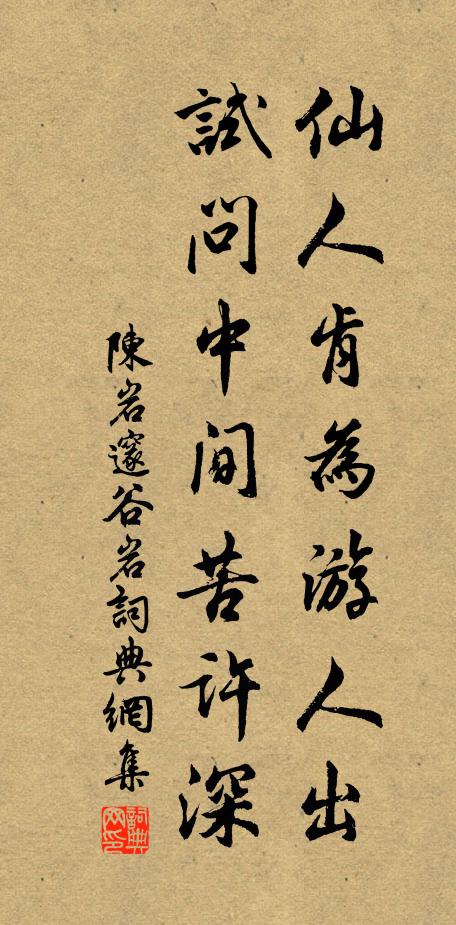 仙人肯為游人出
試問中間苦許深
陳岩邃谷岩詞典網集
詞典網印